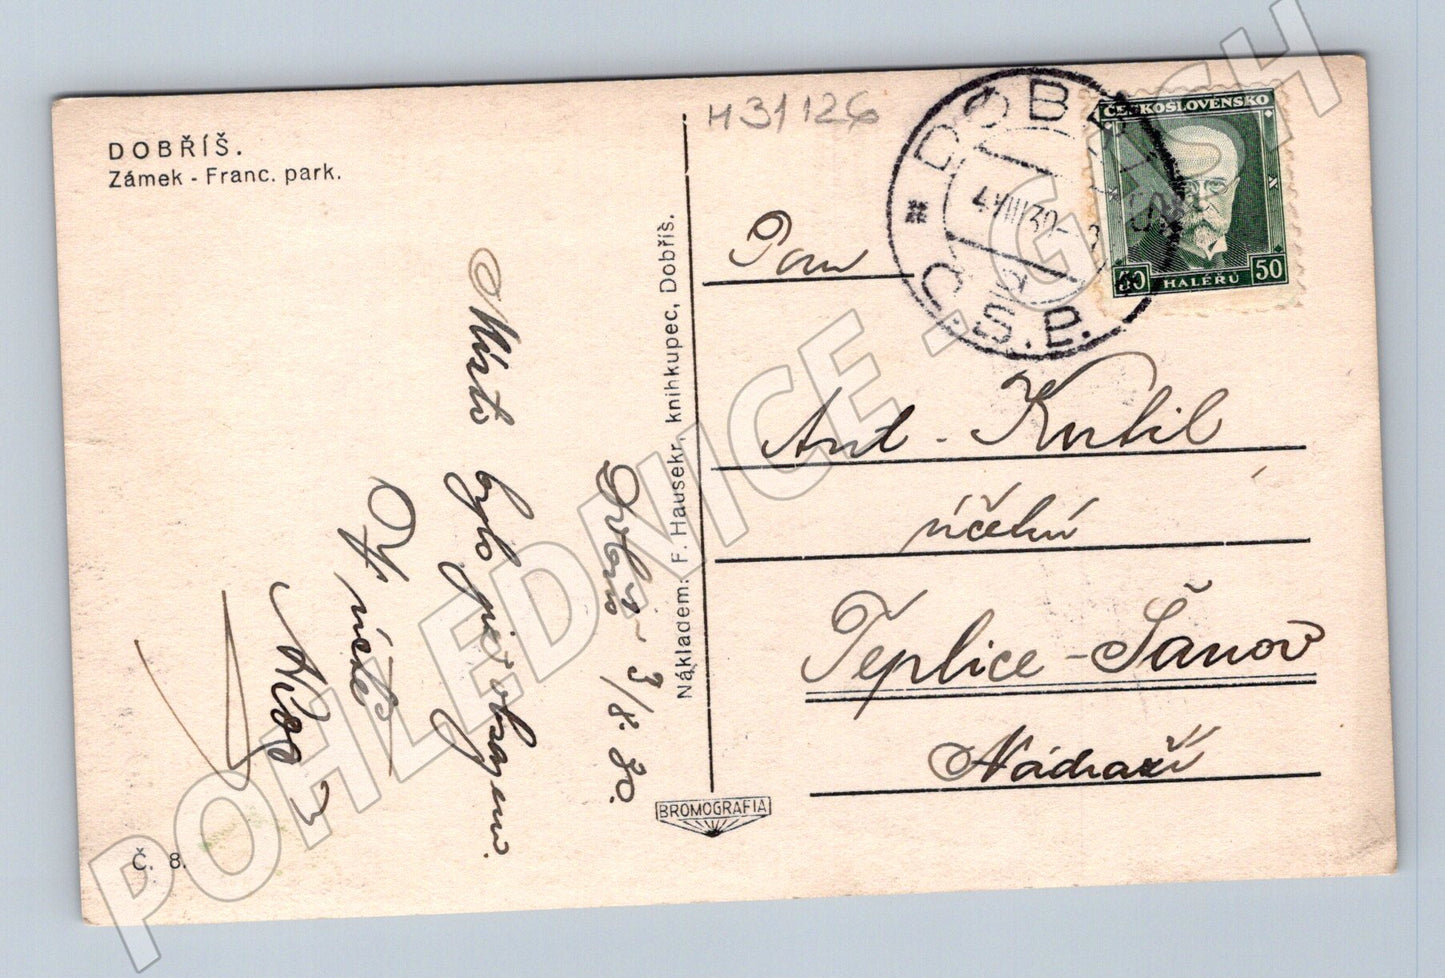 DOBŘÍŠ.
Zámek - Franc. park.
H31126
DOBŘÍŠ
4.VIII 30
Č.S.P.
ČESKOSLOVENSKO
50 HALÉŘŮ 50
Pan
Ant. Kubil
účetní
Teplice-Šanov
Nádraží
3/8. 30.
Místo
bylo
Nákladem: F. Hausekr, knihkupec, Dobříš.
BROMOGRAFIA
Č. 8.
POHLEDNICE - GUSH